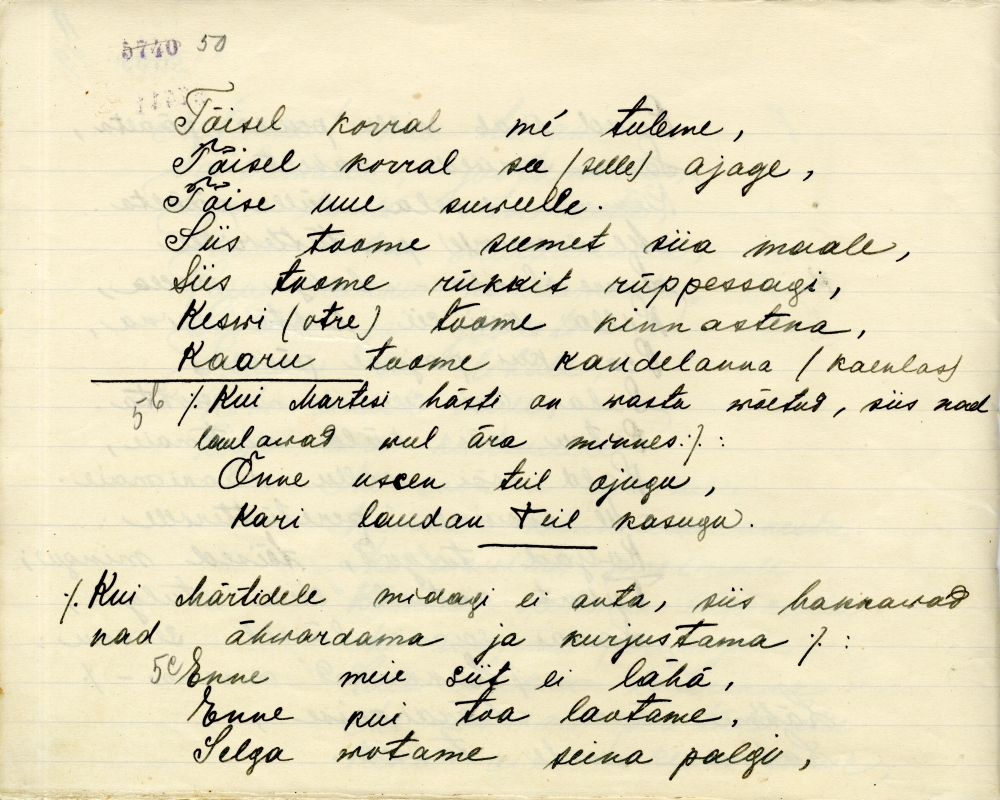 5740 50
Tõisel korral me tuleme,
Tõisel korral see (selle) ajage,
Tõise uue suweelle.
Siis toome seemet siia maale,
Siis toome rükkit rüppessagi,
Keswi (otre) toome kinnastena,
Kaaru toome kandelanna (kaenlas)
5b /. Kui Martisi hästi on wasta wõetud, siis nad
laulawad weel ära minnes:/. :
Õnne uscen teil ojugu,
Kari laudan teil kasugu.
/. Kui Märtidele midagi ei anta, siis hakkawad
nad ähwardama ja kurjustama /. :
5c Enne meie siit ei lähä,
Enne kui toa laotame,
Selga wotame seina palgi,